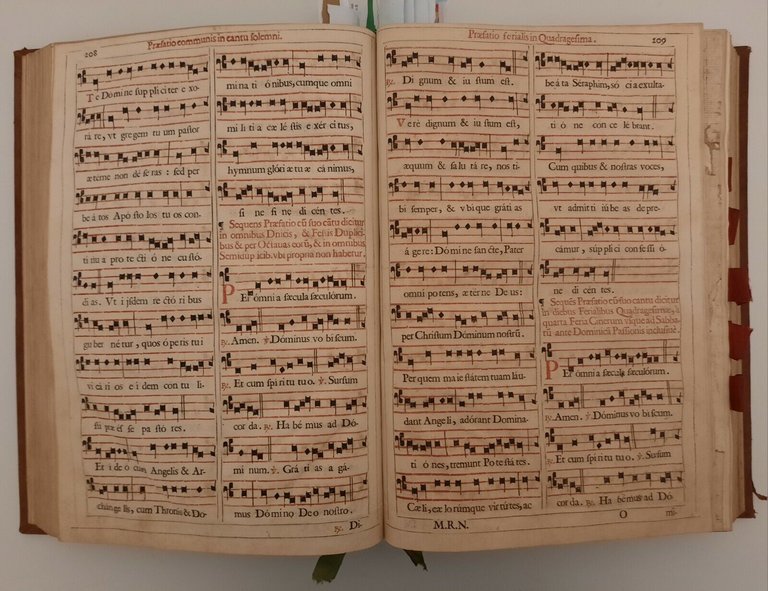 Præfatio communis in cantu solemni.
208
Te Domine suppliciter exo-
ráre, vt gregem tuum pastor
æterne non déseras: sed per
beátos Apóstolos tuos con-
tinua protectióne custó-
dias. Vt ijsdem rectóribus
gubernétur, quos óperis tui
vicários eidem contuli-
sti præésse pastóres.
Et ideo cum Angelis & Ar-
changelis, cum Thronis & Do-
minatiónibus, cumque omni
militia cæléstis exércitus,
hymnum glóriæ tuæ cánimus,
sine fine dicéntes.
¶ Sequens Præfatio cū suo cātu dicitur
in omnibus Dnicis, & Festis Duplici-
bus & per Octauas eorū, & in omnibus
Semidupicib. vbi propria non habetur.
PEr ómnia sæcula sæculórum.
℟. Amen. ℣. Dóminus vobiscum.
℟. Et cum spiritu tuo. ℣. Sursum
corda. ℟. Habémus ad Dó-
minum. ℣. Grátias agá-
mus Dómino Deo nostro.
℟. Di-
Præfatio ferialis in Quadragesima.
109
℟. Dignum & iustum est.
Verè dignum & iustum est,
æquum & salutáre, nos ti-
bi semper, & vbique grátias
ágere: Dómine sancte, Pater
omnipotens, ætérne Deus:
per Christum Dóminum nostrū.
Per quem maiestátem tuam láu-
dant Angeli, adórant Domina-
tiónes, tremunt Potestátes.
Cæli, cælorúmque virtútes, ac
beáta Séraphim, sócia exulta-
tióne concélebrant.
Cum quibus & nostras voces,
vt admitti iúbeas depre-
cámur, súpplici confessió-
ne dicéntes.
¶ Sequēs Præfatio cū suo cantu dicitur
in diebus Ferialibus Quadragesimæ, à
quarta Feria Cinerum vsque ad Sabba-
tū ante Dominicā Passionis inclusiuè.
PEr ómnia sæcula sæculórum.
℟. Amen. ℣. Dóminus vobiscum.
℟. Et cum spiritu tuo. ℣. Sursum
corda. ℟. Habémus ad Dó
M.R.N.
O
mi-